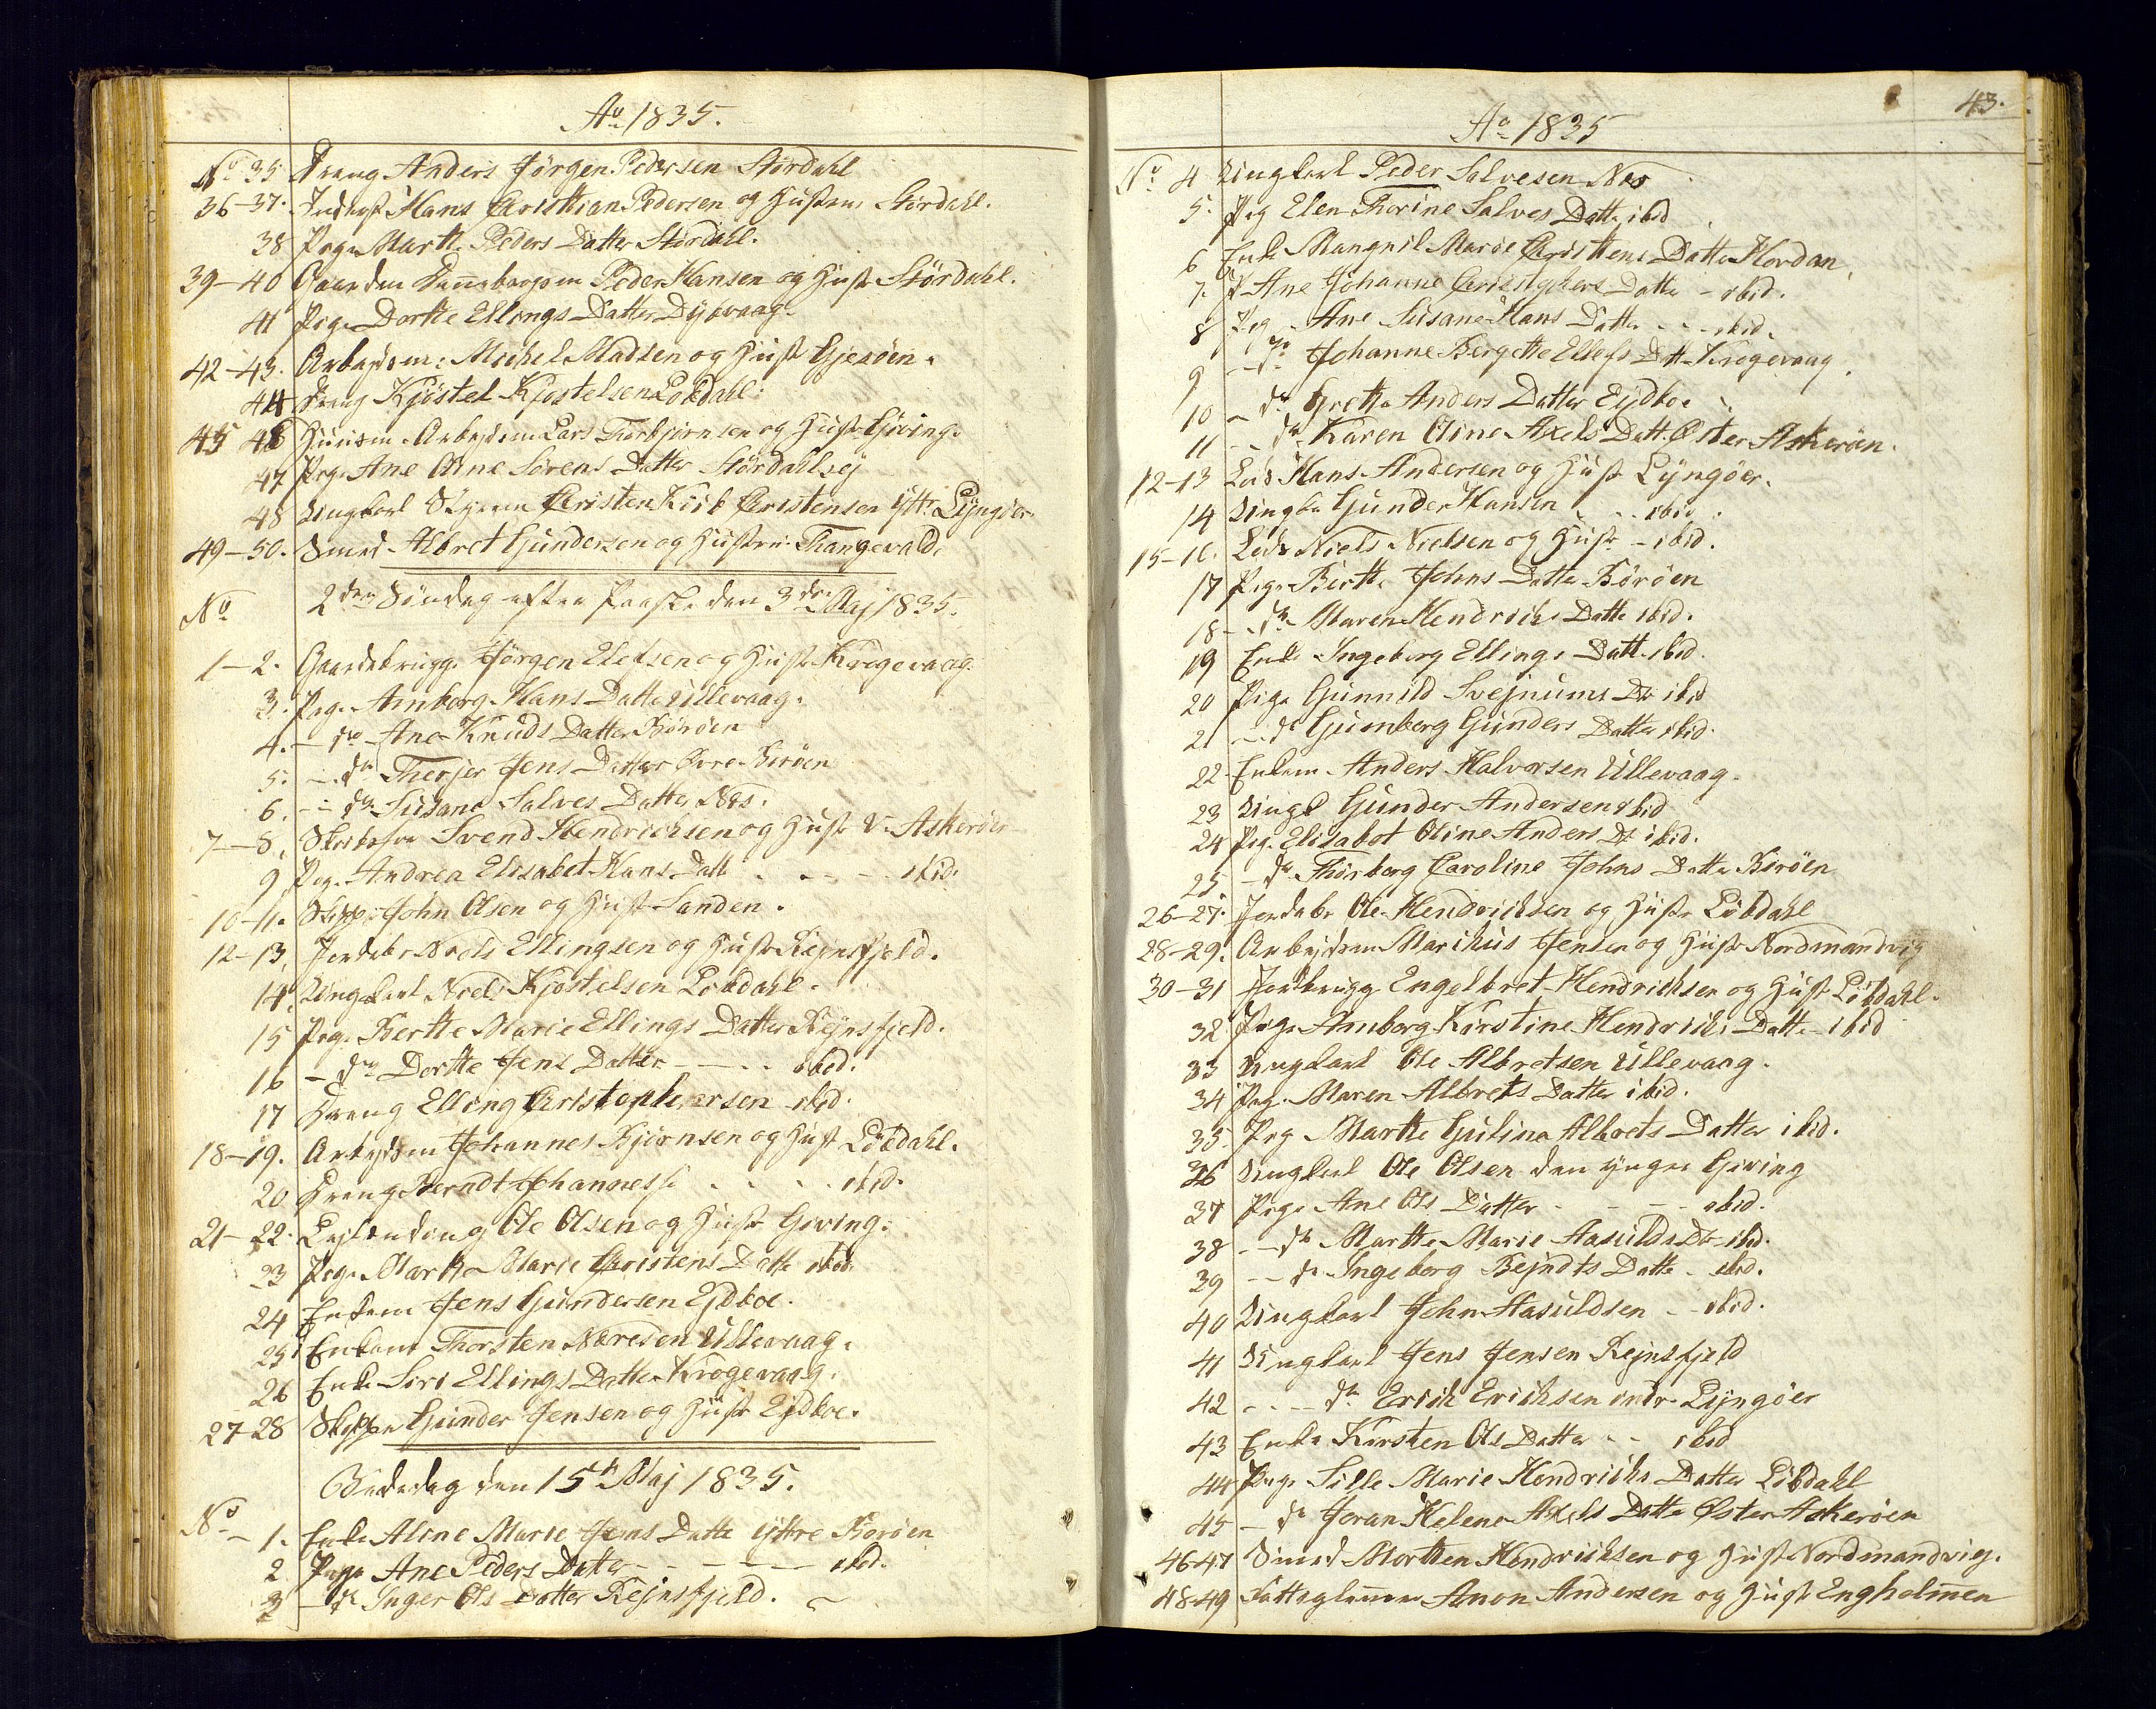 Aº 1835.
Nº 35 Dreng Anders Jørgen Pedersen Stördahl
36-37. Inderst Hans Christian Pedersen og Hustru Stördahl.
38 Pige Marthe Peders Datter Stördahl.
39-40 Gaarden Peder Hansen og Hust Stördahl.
41 Pige Dorthe Ellings Datter Dybvaag.
42-43. Arbejdsm: Michel Madsen og Hust Gjesöen.
44 Dreng Kjöstel Kjostelsen Löbdahl.
45 46 Huusm. Arbejdsm Lars Thorbjörnsen og Hust Giving.
47 Pige Ane Oline Sörens Datter Stördahlsej
48 Ungkarl Christen Kiil Christensen Ytt. Lyngöer
49-50. Smed Albret Gundersen og Hustru Thangevald.
Nº 2den Söndag efter Paaske den 3die Maj 1835.
1-2. Gaardbrugg. Jörgen Elefsen og Hust. Krogevaag.
3. Pige Amborg Hans Datte Ullevaag.
4. - do Ane Knuds Datter Boröen
5. - do Therjer Jens Datter Övre Boröen
6. - do Susane Salves Datter Næs.
7-8. Svend Hendrichsen og Hust V. Askeröen
9 Pige Andrea Elisabet Hans Datt . . - - ibid.
10-11. Skipp. John Olsen og Hust Sanden.
12-13. Jordebr Niels Ellingsen og Hust Rejnsfjeld.
14. Ungkarl Niels Kjöstelsen Löbdahl.
15 Pige Berthe Marie Ellings Datter Rejnsfjeld.
16 - do Dorthe Jens Datter - - - . ibid.
17 Dreng Elling Christophersen ibid.
18-19. Arbejdsm Johannes Bjørnsen og Hust Löbdahl.
20 Dreng Berndt Johanness. . . . . ibid.
21-22. Lejlending Ole Olsen og Hust Giving.
23 Pige Marthe Marie Christens Datte ibid.
24 Enkem Jens Gundersen Ejdboe.
25 Enkem Thorsten Ullevaag.
26 Enke Siri Ellings Datter Krogevaag.
27-28 Skipper Gunder Jensen og Hust Ejdboe.
Bededag den 15de Maj 1835.
Nº - 1. Enke Aline Marie Jens Datte yttre Boröen
2. Pige Ane Peders Datter - - - - ibid.
3 - do Inger Ols Datter Rejnsfjeld.
43.
Aº 1835
Nº 4 Ungkarl Peder Salvesen Næs
5. Pig Elen Thorine Salves Datte ibid
6 Enke Mangnil Marie Christens Datte Hordan.
7. P Ane Johanne Datte - ibid.
8 Pig - Ane Susane Hans Datte . . . ibid.
9 - do Johanne Bergethe Ellefs Dtt Krogevaag.
10 - do Grethe Anders Datter Ejdboe
11 - do Karen Oline Axels Datt. Öster Askeröen.
12-13 Lods Hans Andersen og Hust Lyngöer.
14 Ungka Gunder Hansen . . . ibid.
15-16. Lods Niels Nielsen og Hust - ibid.
17 Pige Birthe Johns Datte Boröen
18 - do Maren Hendrichs Datte ibid.
19 Enke Ingeborg Ellings Datt. ibid.
20 Pige Gunnild Svejnums Dt ibid
21 - do Gumborg Gunders Datte ibid.
22. Enkem. Anders Halvorsen Ullevaag.
23 Ungk Gunder Andersen ibid
24 Pig. Elisabet Oline Anders Dt ibid.
25. - do Thorborg Caroline Johns Datte Boröen
26-27. Jordebr Ole Hendrichsen og Hust. Löbdahl
28-29. Arbejdsm Marihus Jensen og Hust Nordmandvig
30-31 Jordbrugg Engelbret Hendrichsen og Hust Löbdahl.
32 Pige Amborg Kirstine Hendrichs Datte - ibid
33 Ungkarl Ole Albretsen Ullevaag.
34 Pig. Maren Albrets Datter ibid.
35. Pig Marthe Gulina Albrets Datter ibid.
36 Ungkarl Ole Olsen den yngre Giving
37 Pige Ane Ols Datter - - - - ibid.
38 - - do Marthe Marie Aasulds Dt ibid.
39 - - do Ingeborg Bejndts Datte - ibid.
40 Ungkarl John Aasuldsen - - ibid.
41 Ungkarl Jens Jensen Rejnsfjeld
42 - - - do Erich Erichsen indr. Lyngöer
43 Enke Kirsten Ols Datter - - ibid
44 Pige Sille Marie Hendrichs Datter Löbdahl
45 - do Joran Helene Axels Datte Öster Askeröen
46-47 Smed Morthen Hendrichsen og Hust Nordmandvig.
48-49 Anon Andersen og Hust Engholmen